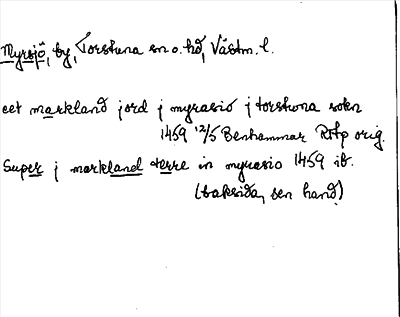 Myrsjö, by, Torstuna sn o. hd, Västm. l.
eet markland jord j myrasiö j torstwna sokn
1459 12/5 Benhammar Rap orig.
Super j markland terre in myrasio 1459 ib.
(baksida, sen hand)